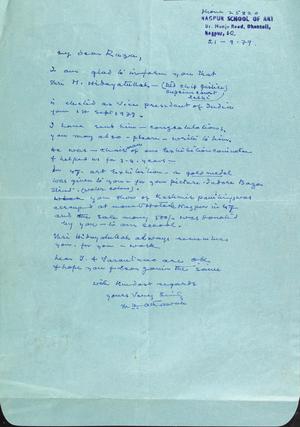 Phone 25820
NAGPUR SCHOOL OF ART
Dr. Munje Road, Dhantoli,
Nagpur, I.C.
21-9.79.
My Dear
I am glad to inform you that
Shri M. Hidayatullah- (Rtd Chif Justice)
Supreme court,
is elected as Vice president of India
on 1st Sept 1979.
I have sent him - congratulations,
you may also - please - write to him,
He was - of our Exhibition committee
& helped us for 3-4 years -
In Art Exhibition - a gold medal
was given to you - for your picture - Bazar
(water colour).
you show of Kashmir paintings was
arranged at Hotel Nagpur in
and the sale money 500/- was Donated
by you - to our school.
Shri Hidayatullah always remembers
you. for you - work
hear J. & are ok
& hope you for the same
with kindest regards
yours Very